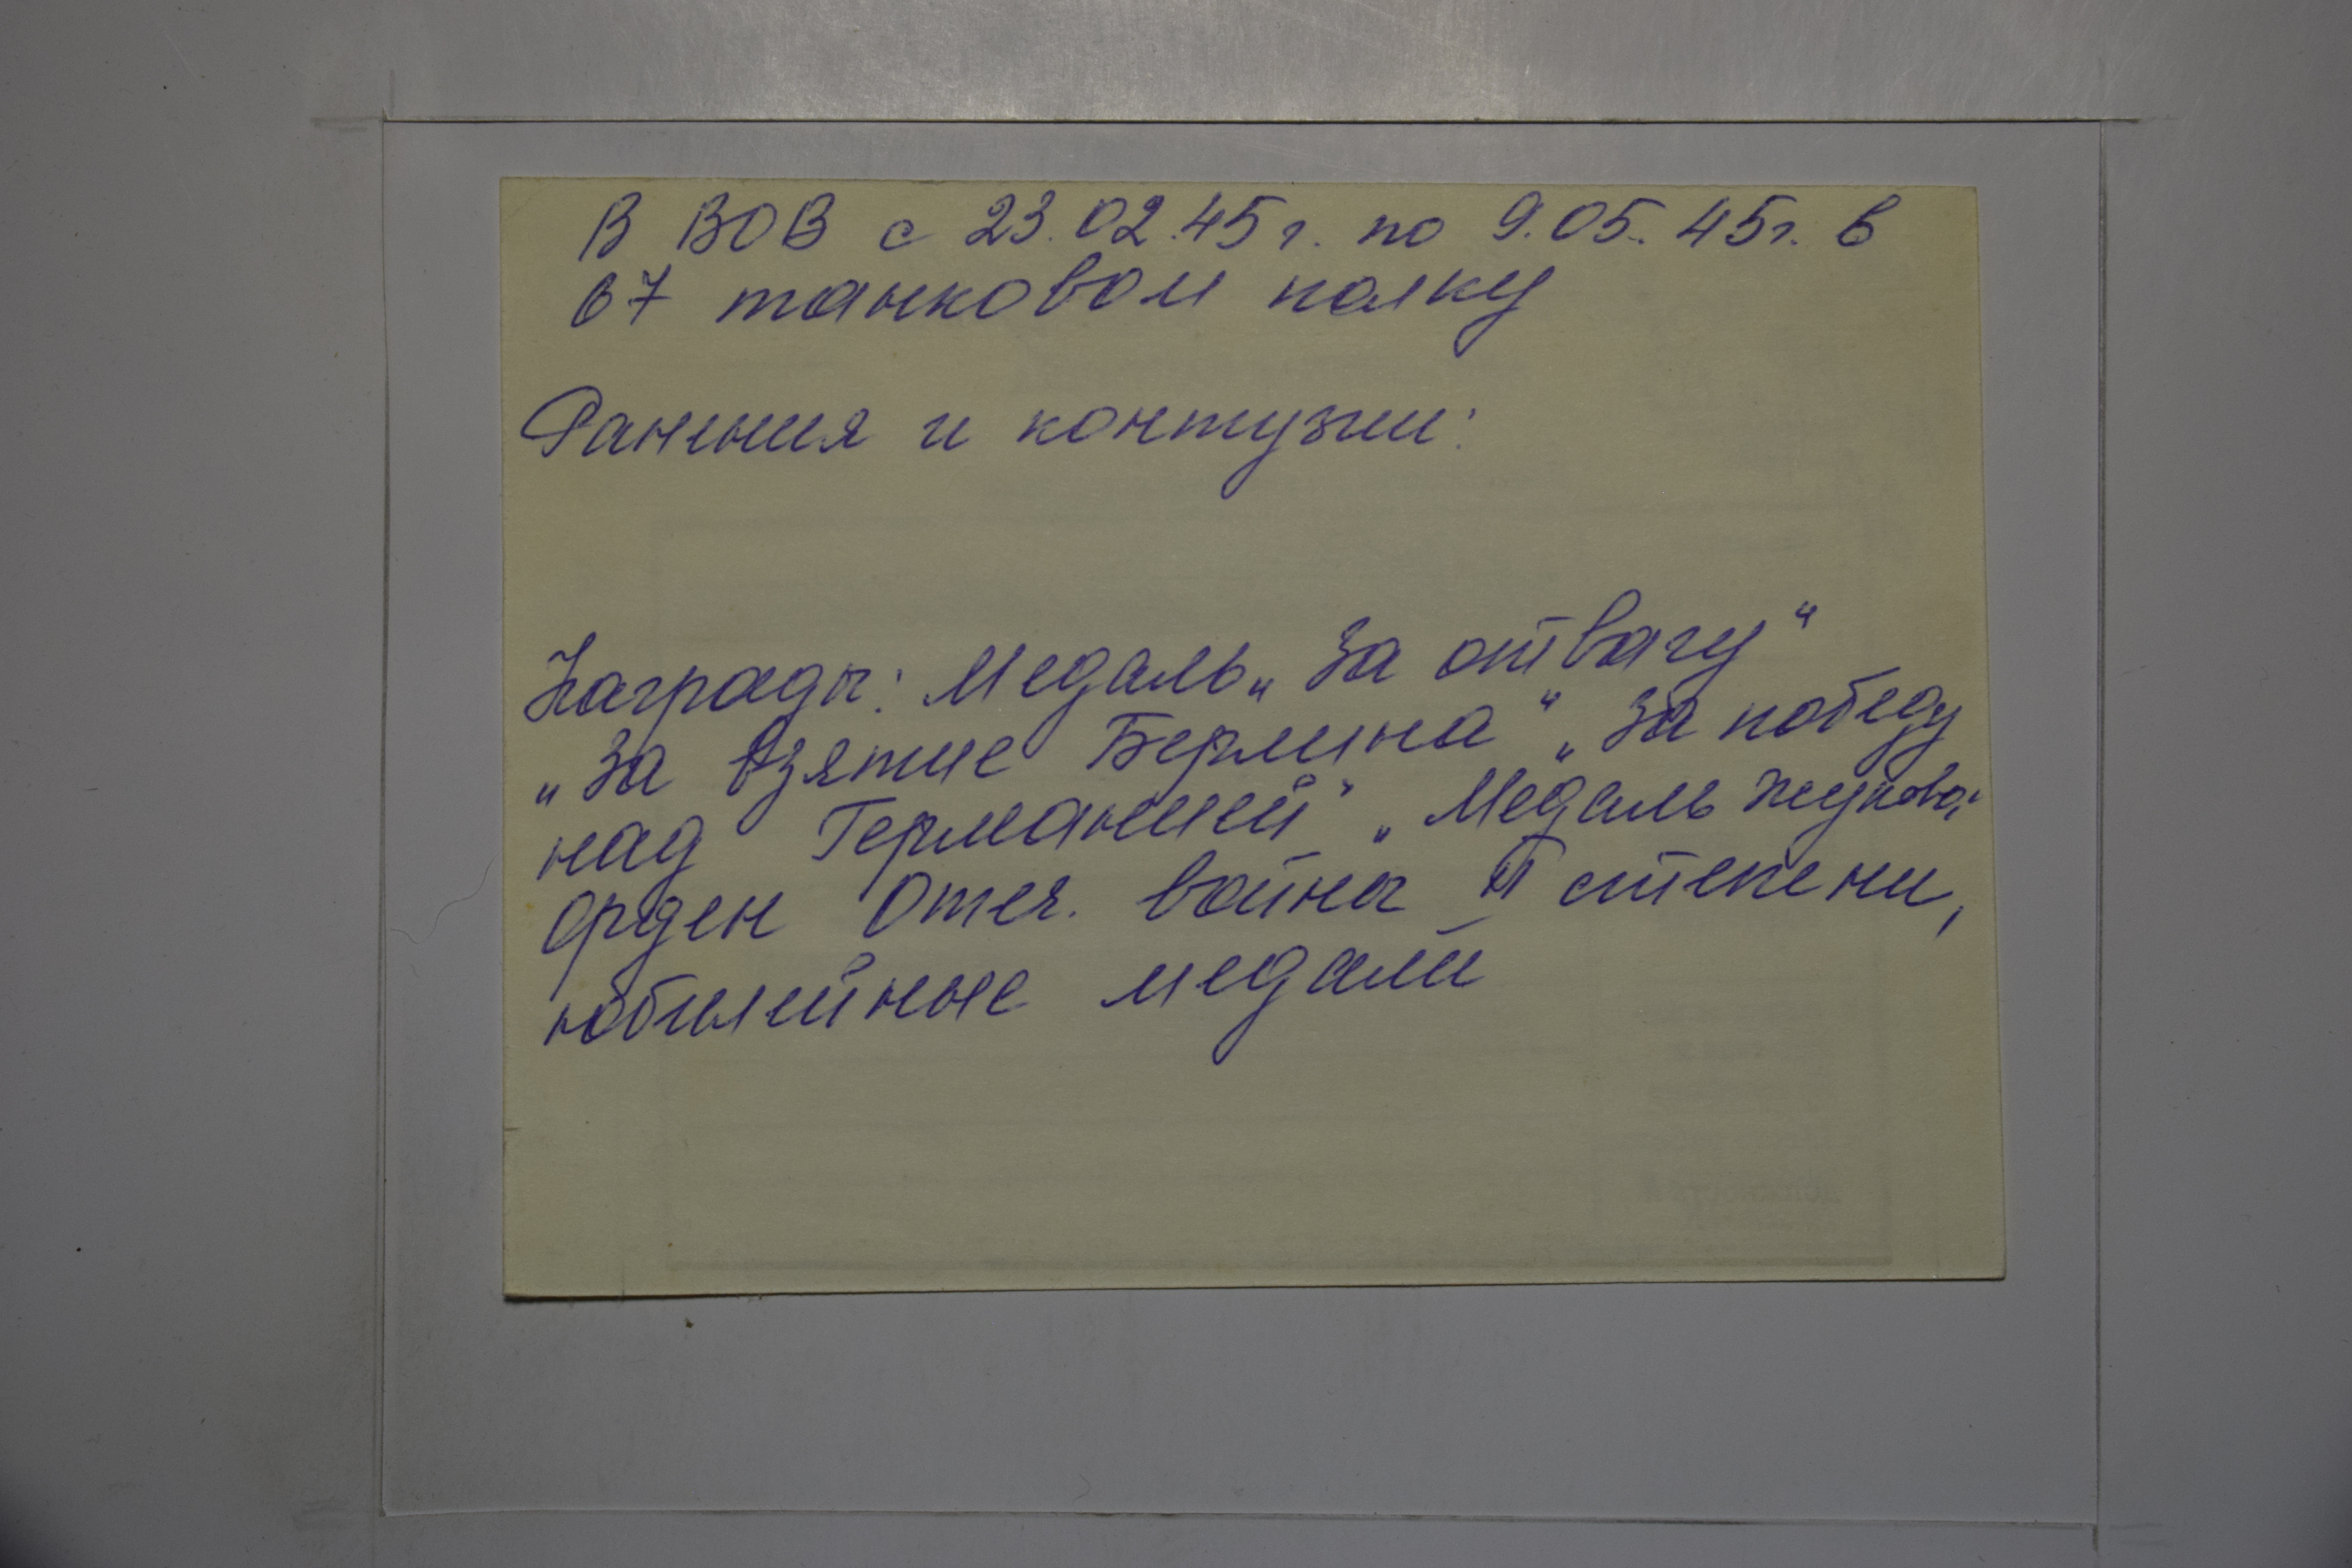 В ВОВ с 23.02.45г. по 9.05.45г. в
67 танковом полку
Ранения и контузии:
Награды: Медаль „За отвагу“
„За взятие Берлина“ „За победу
над Германией“ „Медаль Жукова“
Орден Отеч. войны II степени,
юбилейные медали